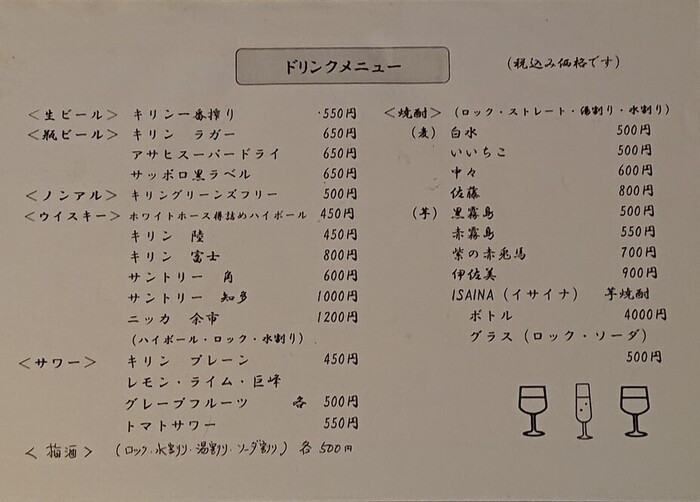 ドリンクメニュー
(税込み価格です)
<生ビール> キリン一番搾り 550円
<瓶ビール> キリン ラガー 650円
アサヒスーパードライ 650円
サッポロ黒ラベル 650円
<ノンアル> キリングリーンズフリー 500円
<ウイスキー> ホワイトホース樽詰めハイボール 450円
キリン 陸 450円
キリン 富士 800円
サントリー 角 600円
サントリー 知多 1000円
ニッカ 余市 1200円
(ハイボール・ロック・水割り)
<サワー> キリン プレーン 450円
レモン・ライム・巨峰
グレープフルーツ 各 500円
トマトサワー 550円
<梅酒> (ロック・水割り・湯割り・ソーダ割り) 各500円
<焼酎> (ロック・ストレート・湯割り・水割り)
(麦) 白水 500円
いいちこ 500円
中々 600円
佐藤 800円
(芋) 黒霧島 500円
赤霧島 550円
紫の赤兎馬 700円
伊佐美 900円
ISAINA (イサイナ) 芋焼酎
ボトル 4000円
グラス (ロック・ソーダ)
500円